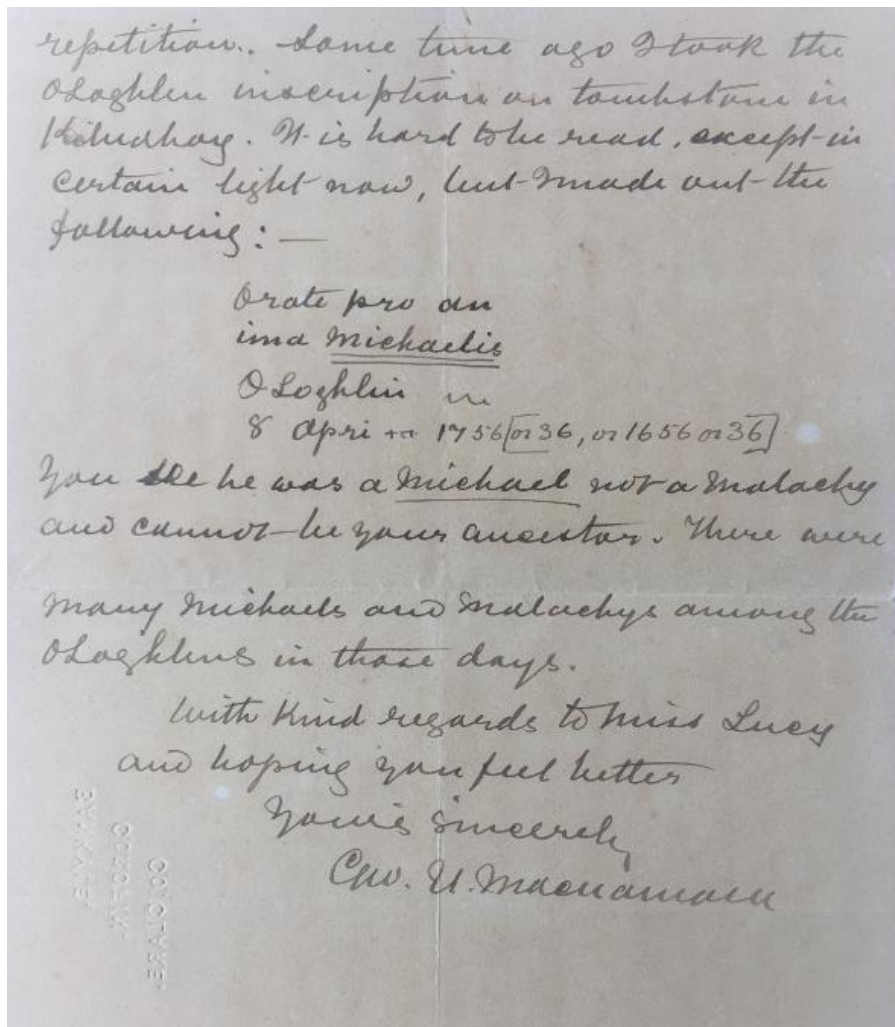 repetition. Some time ago I took the
OLoghlen inscription on tombstone in
It is hard to be read, except in
certain light now, but I made out the
following: —
Orate pro an
ima Michaelis
O Loghlin in
8 Apri 1756 [or 36, or 1656 or 36]
You see he was a Michael not a Malachy
and cannot be your ancestor. There were
many Michaels and Malachys among the
OLoghlens in those days.
With Kind regards to Miss Lucy
and hoping you feel better
Yours Sincerely
Geo. U. Macnamara
BAUNKYLE,
COROFIN,
CO. CLARE.